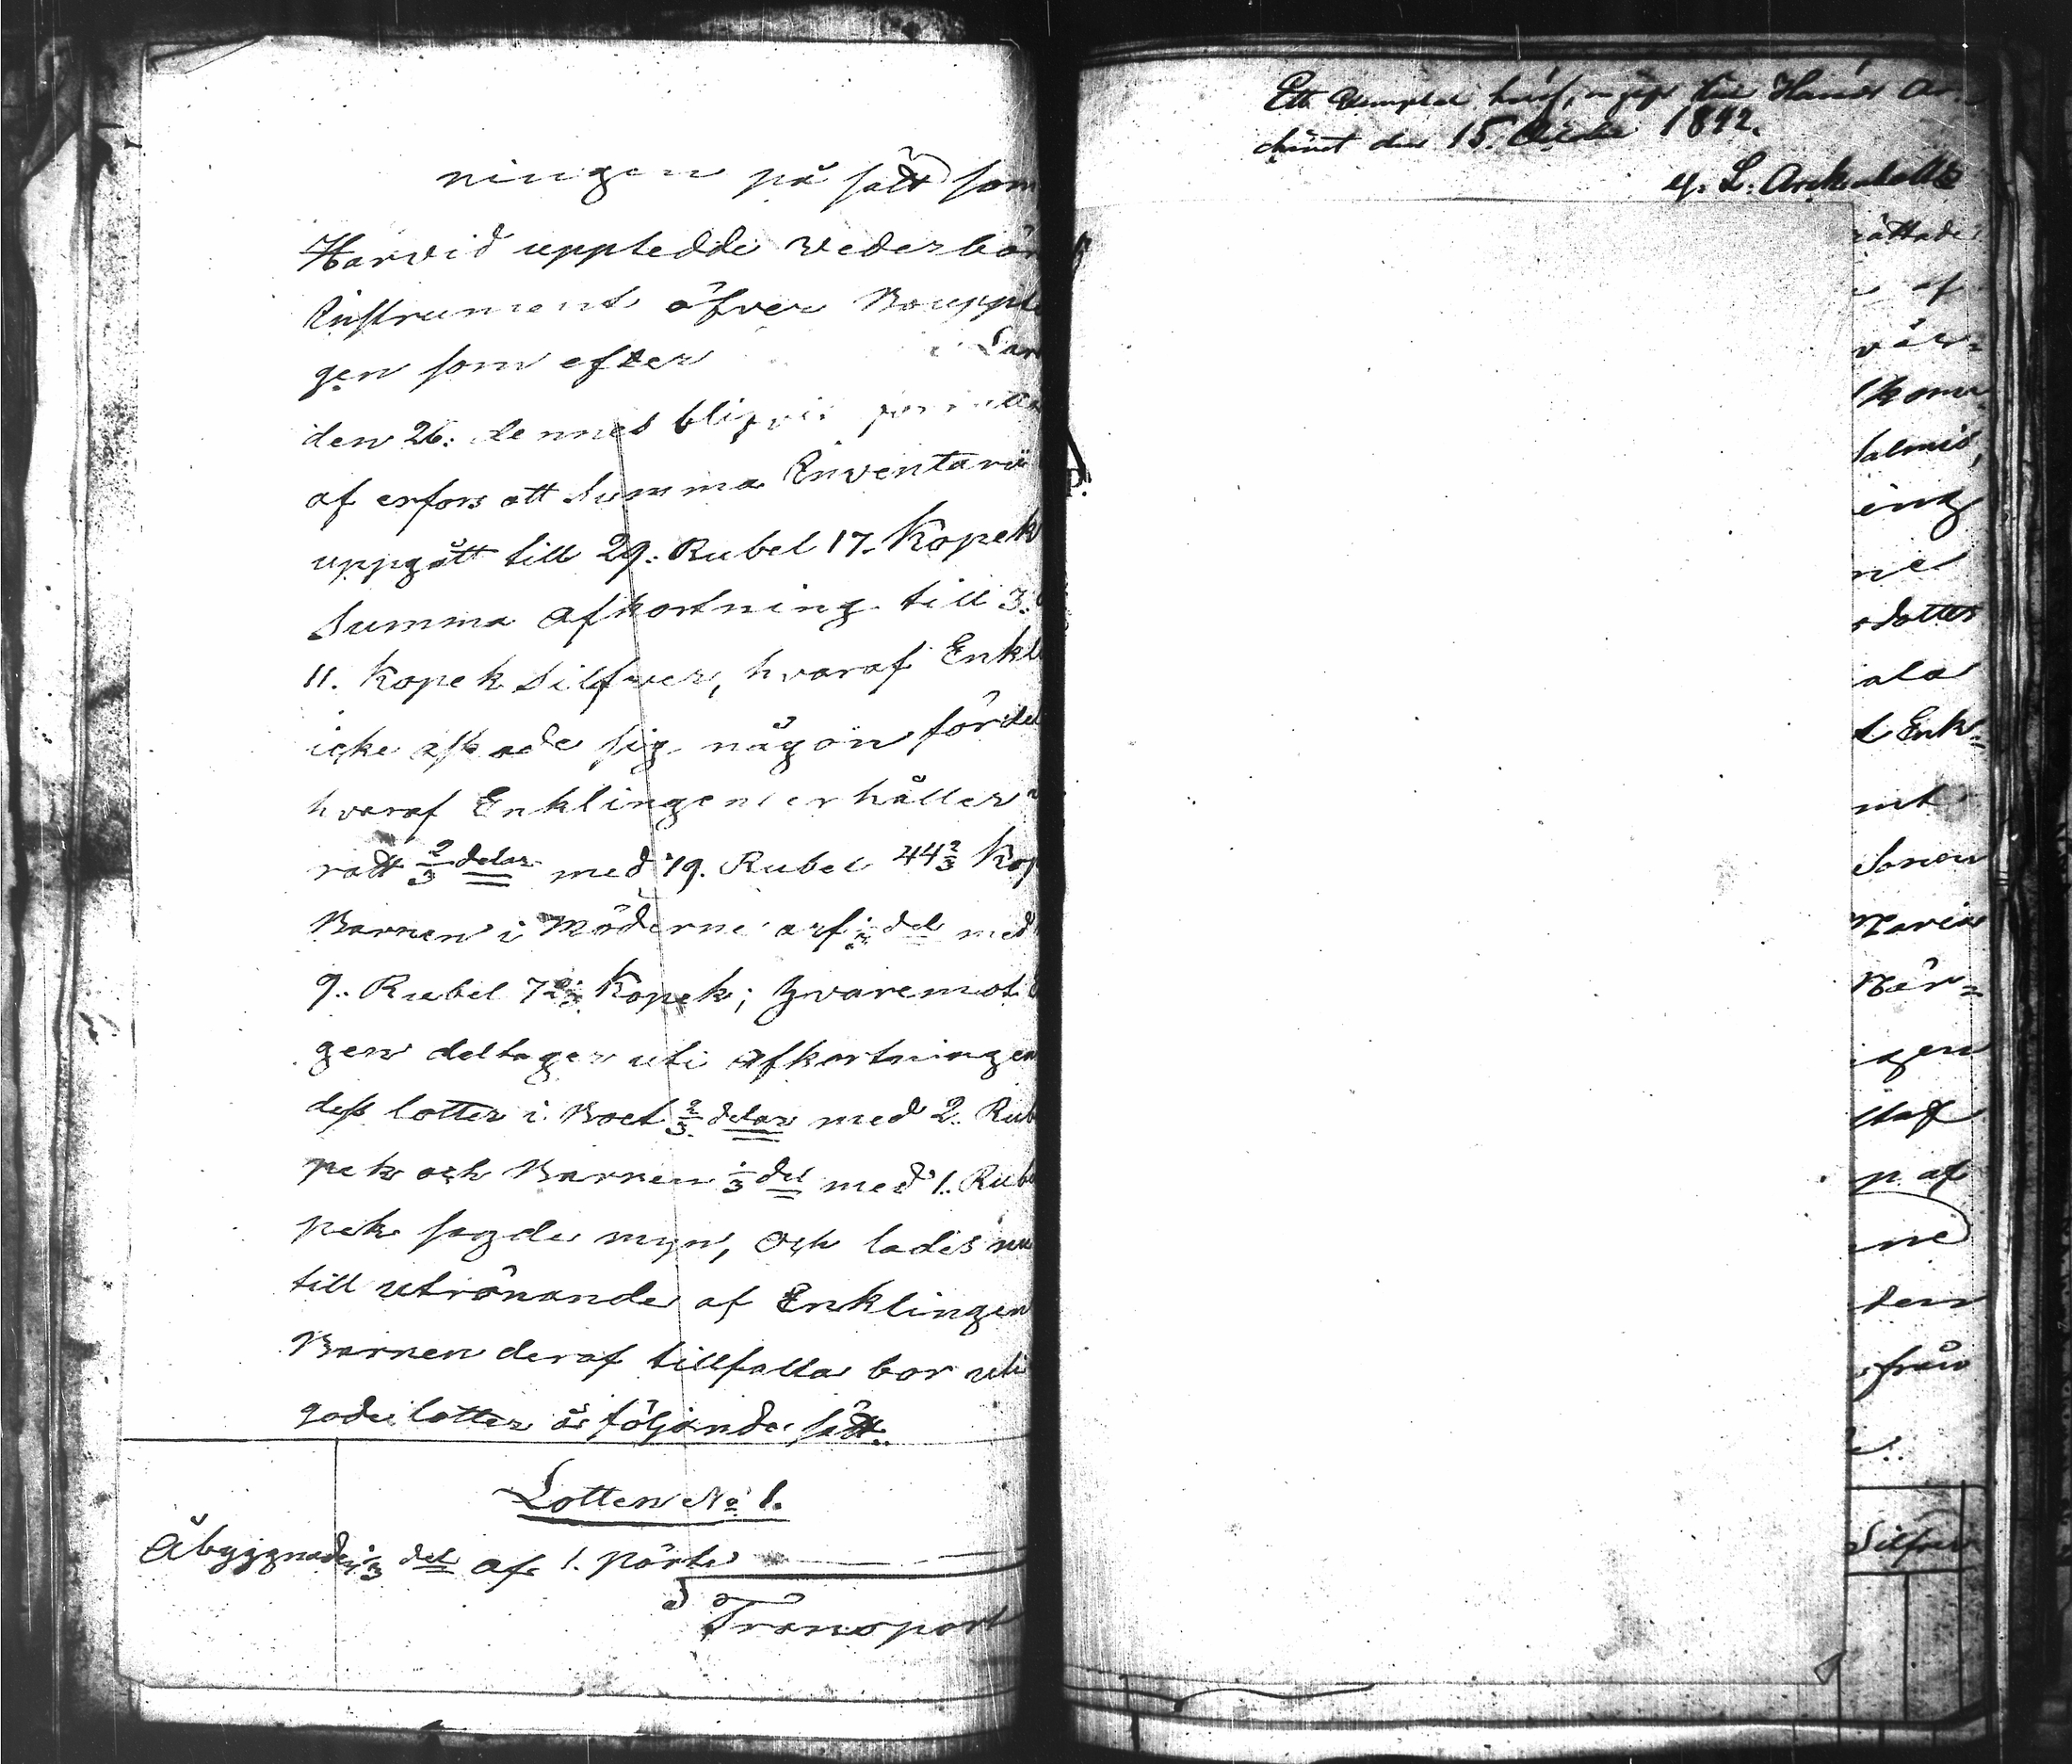 ningen på sätt som
Harvid upptedde vederbör
Instrument öfver Bouppte
gen som efter
den 26: dennes
af erfors att Summa Inventarii
uppgått till 29: Rubel 17. Kopek
Summa afkortning till 3.
11. Kopek Silfver, hvaraf Enkl
icke sig någon fördel
hvaraf Enklingen erhåller
rätt 2/3 delar med 19. Rubel 44 2/3 Kop
Barnen i Möderne arf 1/3 del med
9. Rubel 72 1/3 Kopek; hvaremot
gen deltager uti afkortningen
dess lotter i Boet 2/3 delar med 2. Rub
pek och Barnen 1/3 del med 1. Rub
pek sagde myn, och lades nu
till utrönande af Enklingen
Barnen deraf tillfalla bör uti
gode lotter å följande sätt.
Lotten No 1.
Åbyggnader 1/3 del af 1. Pörte
Transport
Ett
den 15. 1892.
L.
rättade
af
vär-
salmis,
ing
ne
sdotter
ala
t Enk-
mt
Sonen
Maria
När-
igen
staf
p. af
ne
den
från
Silfver